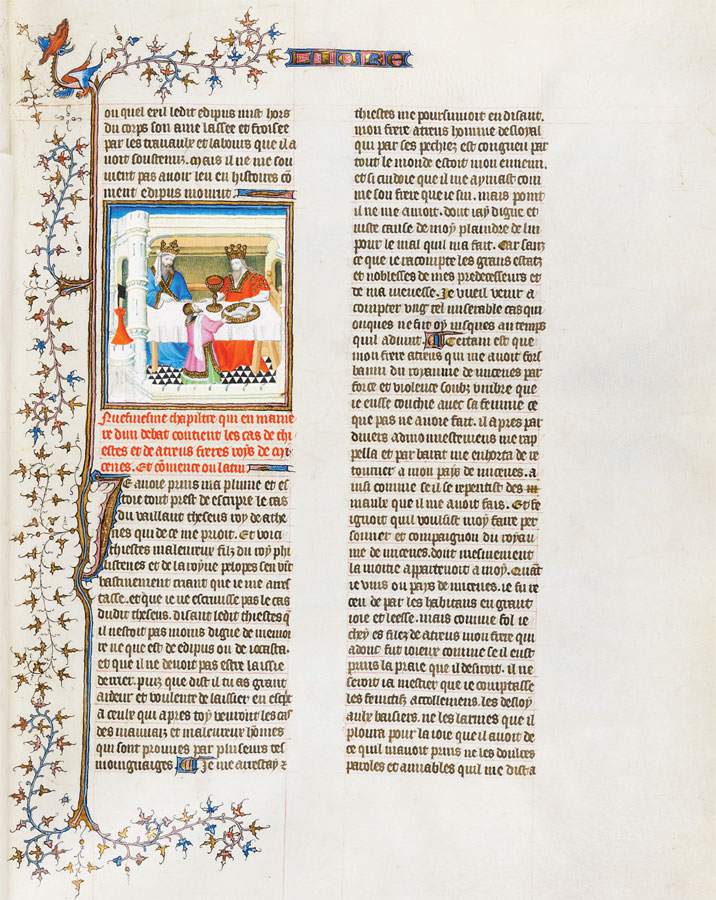 ou quel exil ledit edipus mist hors
du corps son ame lassee et froissee
par les travaulx et labours que il a
voit soustenuz. Mais il ne me sou
vient pas avoir leu en histoires cō
ment edipus mourut.
Nuefviesme chapiltre qui en manie
re dun debat contient les cas de thi
estes et de atreus freres roys de mi
cenes. Et cōmence ou latin
Je avoie prins ma plume et es
toie tout prest de escripre le cas
du vaillant theseus roy de athe
nes qui de ce me prioit. Et voici
thiestes maleureux filz du roy phi
listenes et de la royne pelopes son vint
hastivement criant que ie me arres
tasse. et que ie ne escrivisse pas le cas
dudit theseus. disant ledit thiestes q̄
il nestoit pas moins digne de memoi
re ne que est de edipus ou de iocasta.
et que il ne devoit pas estre laissie
derrier. puis que dist il tu as grant
ardeur et voulente de laissier en escp̄t
a ceulx qui apres toy vendront les cas
des mauvaiz et maleureux hōmes
qui sont prouves par pluseurs tes
moingnaiges. Je me arrestay &
thiestes me poursuivoit en disant.
mon frere atreus homme desloyal
qui par ses pechiez est congneu par
tout le monde estoit mon ennemi.
et si cuidoie que il me aymast com
me son frere que ie sui. mais point
il ne me amoit. dont iay digne et
iuste cause de moy plaindre de lui
pour le mal quil ma fait. Car sanz
ce que ie racompte les grans estatz
et noblesses de mes predecesseurs et
de ma ieunesse. Je vueil venir a
compter ung tel miserable cas qui
onques ne fut oy iusques au temps
quil advint. Certain est que
mon frere atreus qui me avoit for
banni du royaume de micenes par
force et violence soubz umbre que
ie eusse couchie avec sa femme ce
que pas ne avoie fait. il apres par
divers admonnestemens me rap
pella et par barat me enhorta de re
tourner a mon pays de micenes. a
insi comme se il se repentist des
maulx que il me avoit fais. Et fe
ignoit quil voulsist moy faire per
sonnier et compaignon du royau
me de micenes. dont mesmement
la moitie appartenoit a moy. Quāt
ie vins ou pays de micenes. ie fu re
ceu de par les habitans en grant
ioie et leesse. mais comme fol ie
chey es filez de atreus mon frere qui
adonc fut ioieux comme se il eust
prins la praie que il desiroit. il ne
seroit ia mestier que ie comptasse
les feinctifz accollemens. les desloy
aulx baisiers. ne les larmes que il
ploura pour la ioie que il avoit de
ce quil mavoit prins ne les doulces
paroles et amiables quil me dist a